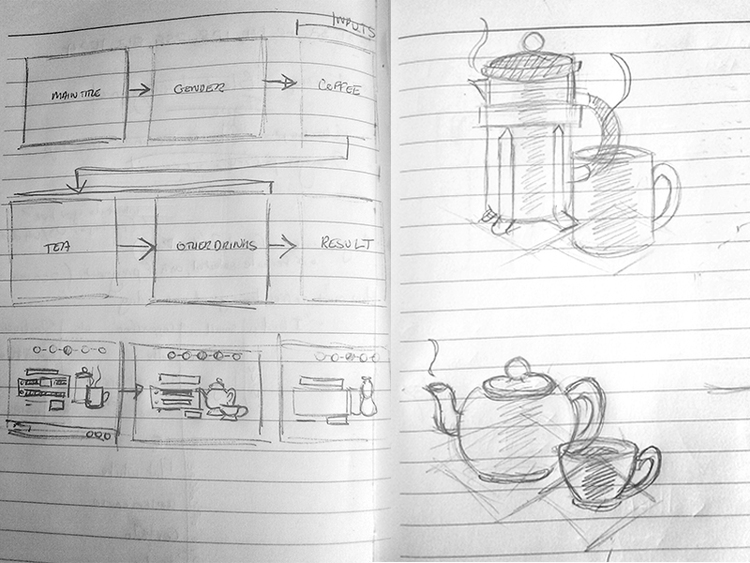 INPUTS
MAIN TITLE
GENDER
COFFEE
TEA
OTHER DRINKS
RESULT